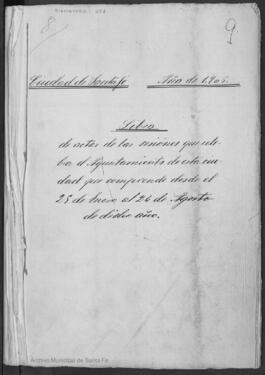 8
9
Ciudad de Santafé Año de 1.905.
Libro
de actas de las sesiones que cele-
bra el Ayuntamiento de esta ciu-
dad que comprende desde el
25 de Enero al 26 de Agosto
de dicho año.
Archivo Municipal de Santa Fe